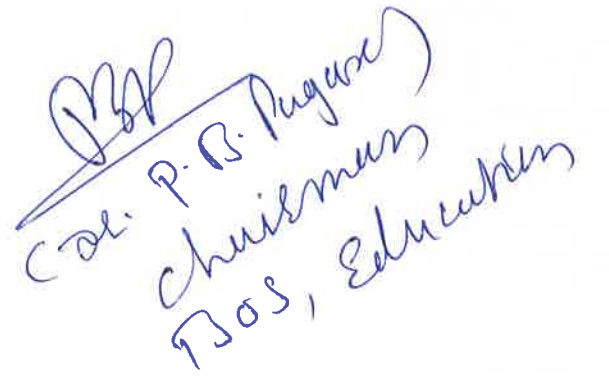 (Dr. P. B. Pagare)
Chairman
BOS, Education